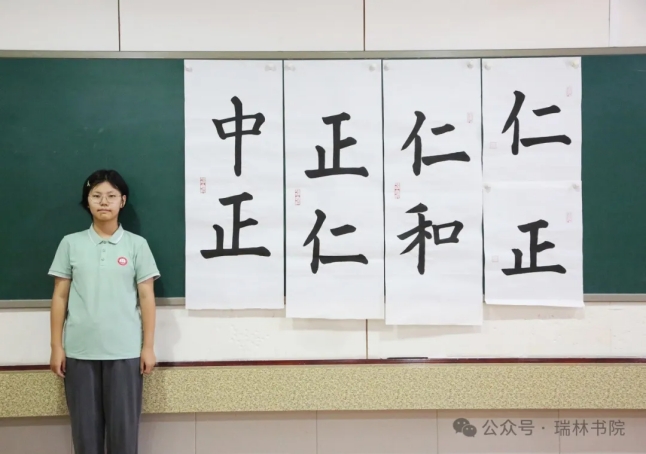 中正
正仁
仁和
仁
正
公众号·瑞林书院